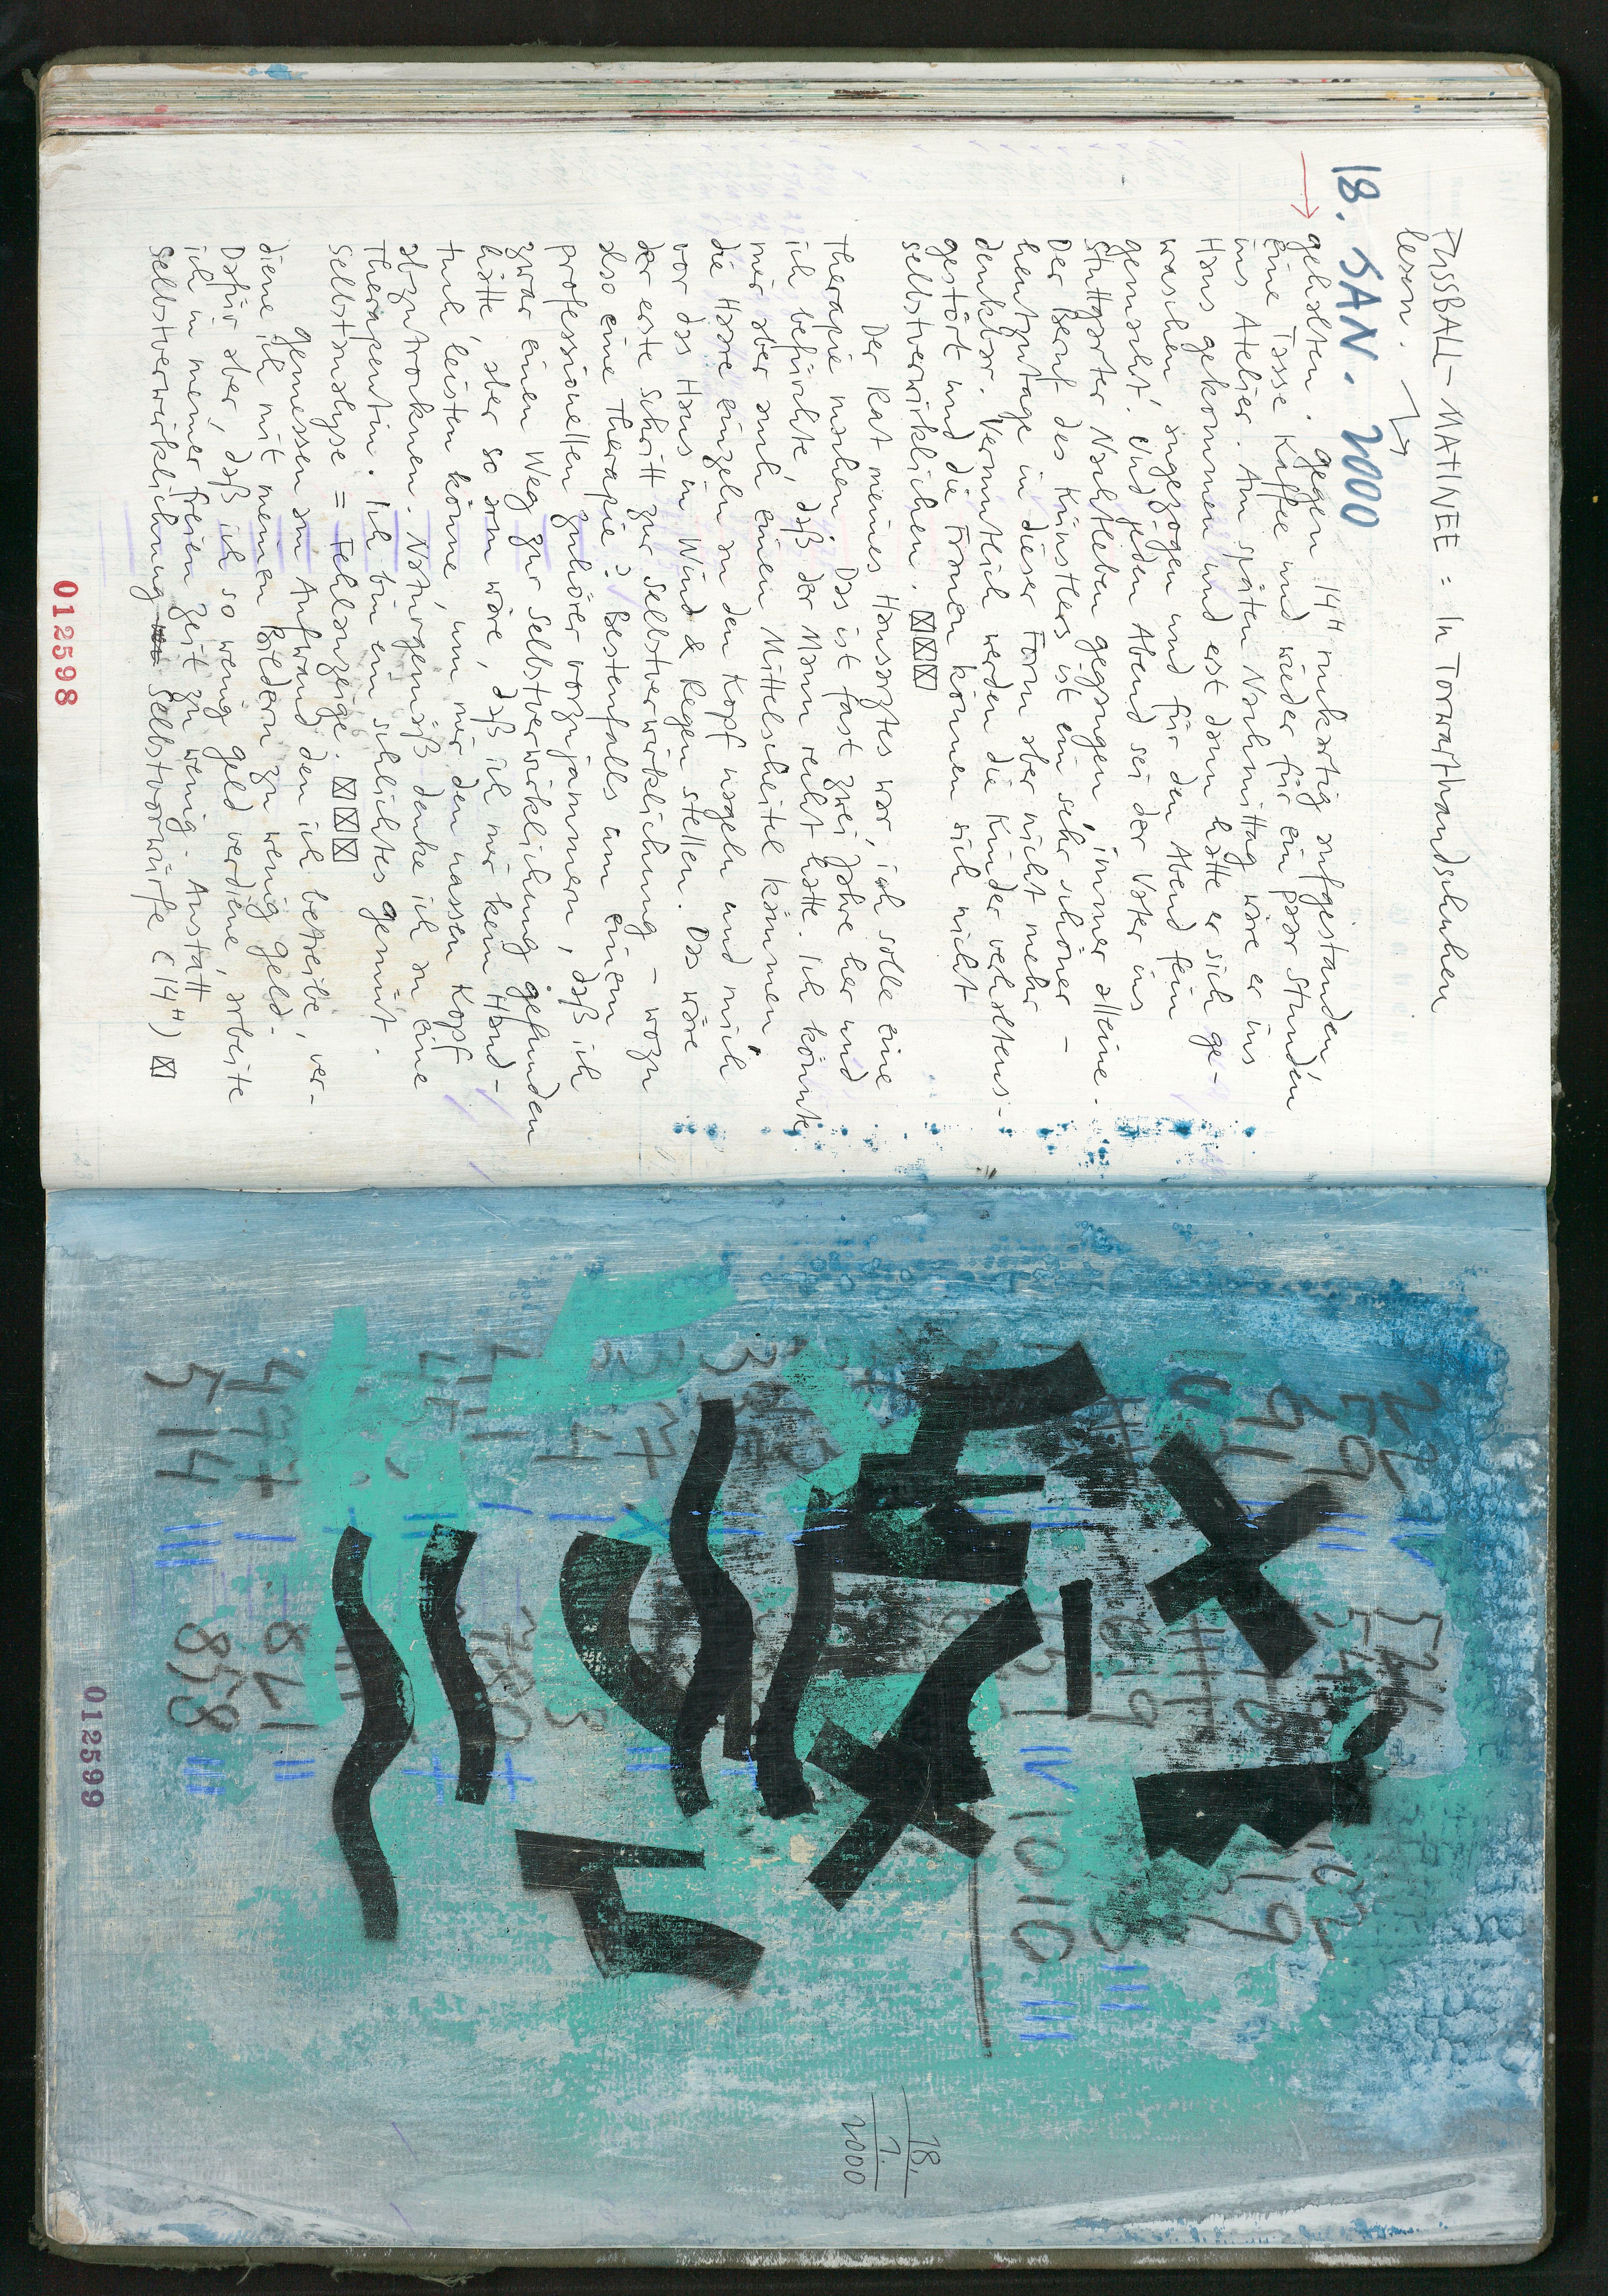 FUSSBALL-MATINEE: In Torwarthandschuhen
lesen.
18. JAN. 2000
gehalten. Gegen 14ʰ ruckartig aufgestanden,
eine Tasse Kaffee und wieder für ein paar Stunden
ins Atelier. Am späten Nachmittag wäre er ins
Haus gekommen und erst dann hätte er sich ge-
waschen, angezogen und für den Abend fein
gemacht. Und jeden Abend sei der Vater ins
Stuttgarter Nachtleben gegangen, immer alleine.
Der Beruf des Künstlers ist ein sehr schöner –
heutzutage in dieser Form aber nicht mehr
denkbar. Vermutlich werden die Kinder verhaltens-
gestört und die Frauen können sich nicht
selbstverwirklichen. ☒☒☒
Der Rat meines Hausarztes war, ich solle eine
Therapie machen. Das ist fast zwei Jahre her und
ich befürchte, daß der Mann recht hatte. Ich könnte
mir aber auch einen Mittelscheitel kämmen,
die Haare einzeln an den Kopf nageln und mich
vor das Haus in Wind & Regen stellen. Das wäre
der erste Schritt zur Selbstverwirklichung – wozu
also eine Therapie? Bestenfalls um einem
professionellen Zuhörer vorzujammern, daß ich
zwar einen Weg zur Selbstverwirklichung gefunden
hätte, aber so arm wäre, daß ich mir kein Hand-
tuch leisten könne, um mir den nassen Kopf
abzutrocknen. Naturgemäß denke ich an eine
Therapeutin. Ich bin ein schlichtes Gemüt.
Selbstanalyse = Fehlanzeige. ☒☒☒
Gemessen am Aufwand den ich betreibe, ver-
diene ich mit meinen Bildern zu wenig Geld.
Dafür aber, daß ich so wenig Geld verdiene, arbeite
ich in meiner freien Zeit zu wenig. Anstatt
Selbstverwirklichung Selbstvorwürfe (14ʰ) ☒
012598
91
19
1010
477
821
514
858
18.
1.
2000
012599